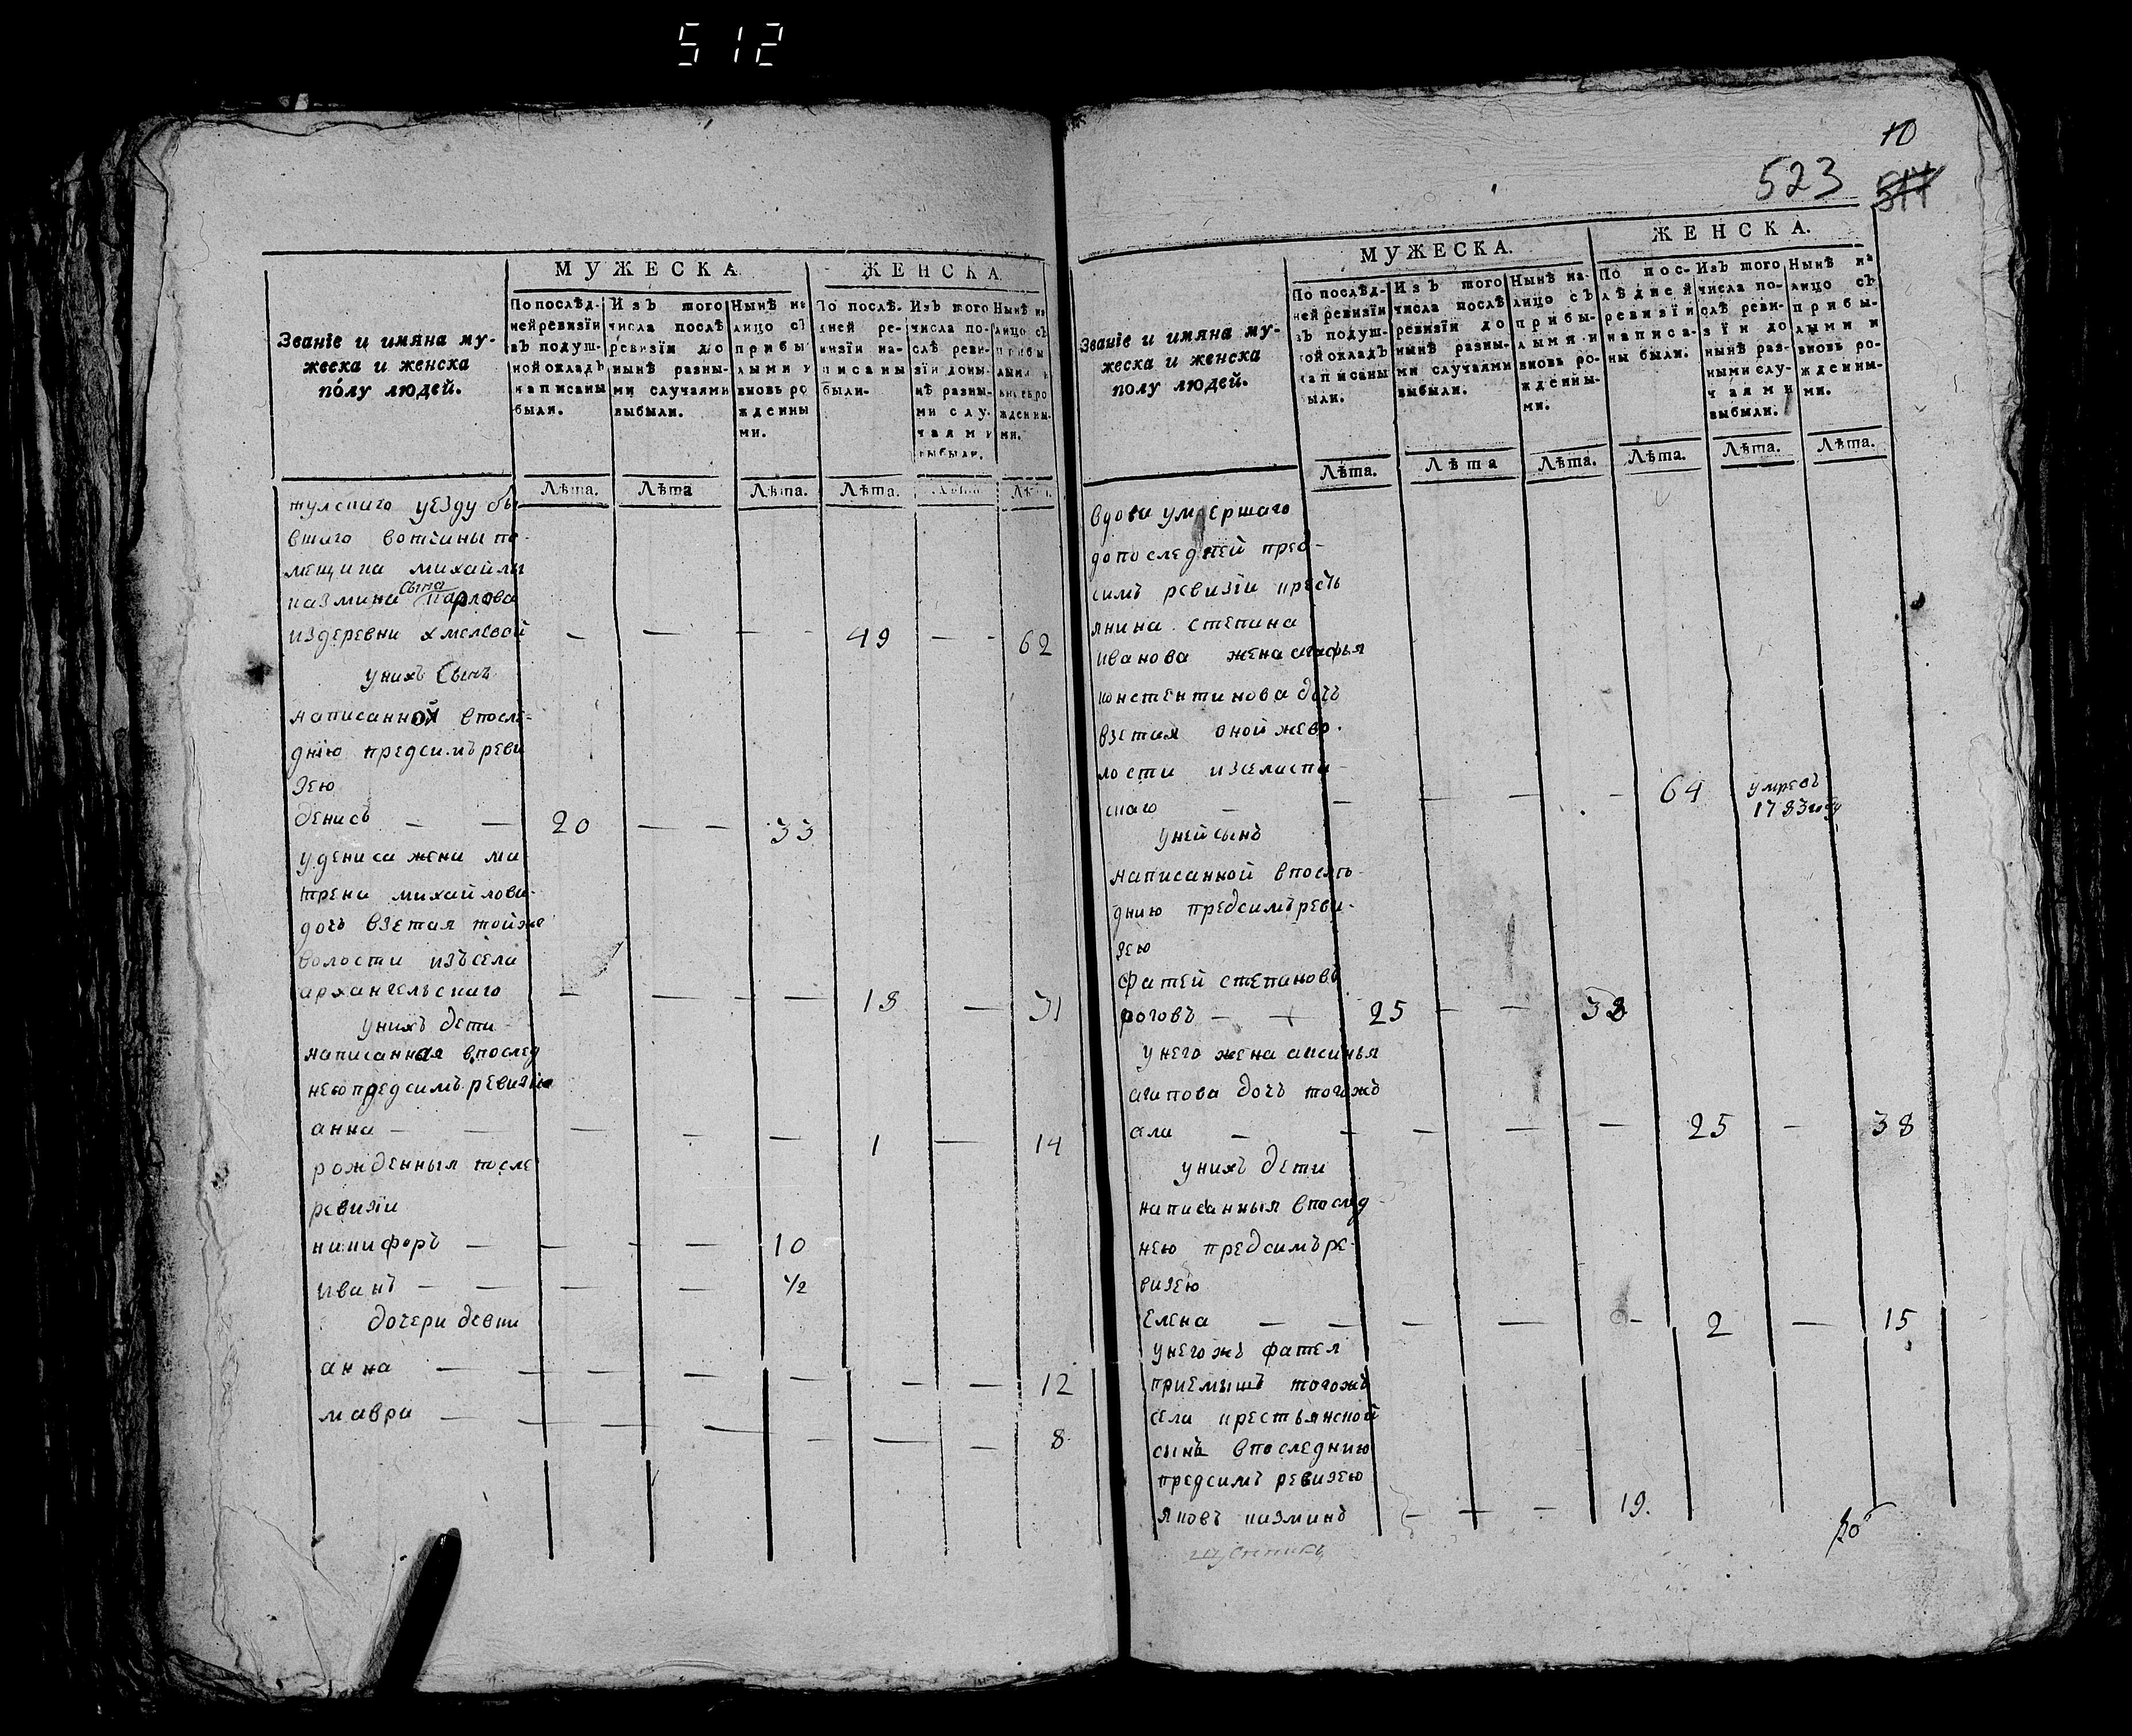 512
МУЖЕСКА
ЖЕНСКА
Званіе и имяна му-
жеска и женска
полу людей.
По послѣд-
ней ревизіи
въ подуш-
ной окладъ
написаны
были.
Изъ того
числа послѣ
ревизіи до
нынѣ разны-
ми случаями
выбыли.
Нынѣ на
лицо съ
прибы
лыми и
вновь ро
жденны
ми.
По послѣ-
дней ре-
визіи на-
писаны
были.
Изъ того
числа по-
слѣ реви-
зіи доны-
нѣ разны-
ми слу-
чаями
выбыли.
Нынѣ на
лицо съ
прибы
лыми и
вновь ро
жденны-
ми.
Лѣта. Лѣта Лѣта. Лѣта. Лѣта Лѣт.
тулскаго уезду бы
вшаго вотчины по-
мещика михайлы
казмина сына карлова
издеревни хмелевой — — - - 49 — - 62
унихъ сынъ
написанной впосле-
днію предсимъ реви
зею
денисъ — — 20 — — 33
удениса жена ма
трена михайлова-
дочь взетая тойже
волости изъсела
архангельскаго — — - — 18 — 31
унихъ дети
написанная впослед
нею предсимъ ревизію
анна — — — - — 1 — 14
рожденныя после
ревизіи
никифоръ — — - — 10
иванъ — — — — 1/2
дочери девки
анна — — — — — — — 12
мавра — — — — — — — 8
10
523 517
МУЖЕСКА.
ЖЕНСКА.
Званіе и имяна му-
жеска и женска
полу людей.
По послѣд-
ней ревизіи
въ подуш-
ной окладъ
написаны
были.
Изъ того
числа послѣ
ревизіи до
нынѣ разны-
ми случаями
выбыли.
Нынѣ на-
лицо съ
прибы-
лыми и
вновь ро-
жденны-
ми.
По пос-
лѣдней
ревизіи
написа-
ны были.
Изъ того
числа по-
слѣ реви-
зіи до
нынѣ раз-
ными слу-
чаями
выбыли.
Нынѣ на
лицо съ
прибы-
лыми и
вновь ро-
жденны-
ми.
Лѣта. Лѣта Лѣта. Лѣта. Лѣта. Лѣта.
вдова умдершаго
допоследней пред-
симъ ревизіи кресть
янина степана
иванова жена агафья
констентинова дочь
взетая оной жево-
лости изселаспа-
скаго — — — — - 64 умре въ
1783 году
уней сынъ
написанной впосле-
днию предсимъ реви-
зею
фатей степановъ
роговъ — — 25 — — 38
унего жена аксинья
агапова дочь тогожъ
ала — — — — — 25 — 38
унихъ дети
написанныя впослед-
нею предсимъ ре-
визею
Елена — — — — - 2 — 15
унегожъ фатея
приемышъ тогожъ
села крестьянской
сынъ впоследнию
предсимъ ревизею
яковъ казминъ — — — 19.